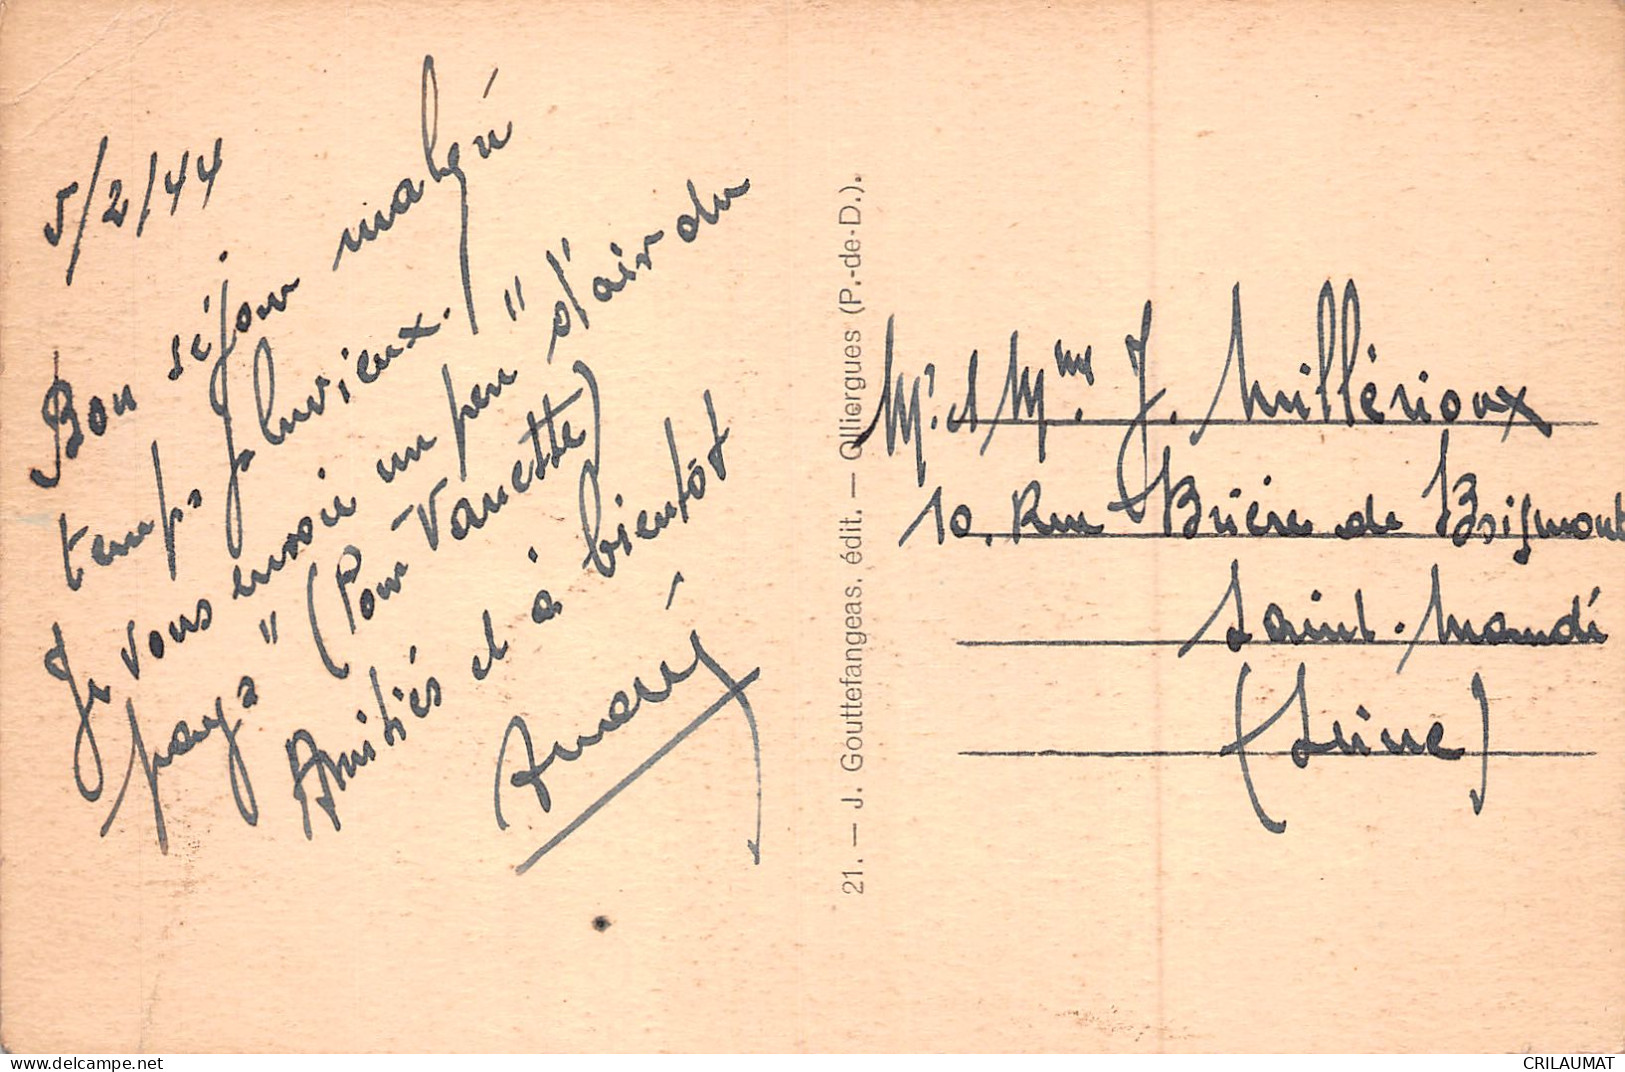 5/2/44
Bon séjour malgré
temps pluvieux.
Je vous envoie un peu "d'air du
pays" (Pour Vanette)
Amitiés et à bientôt
21. — J. Gouttefangeas, édit. — Olliergues (P.-de-D.).
Mr. et Mme. J. Millérioux
10. Rue Brière de Boismont
Saint-Mandé
(Seine)
delcampe.net
CRILAUMAT